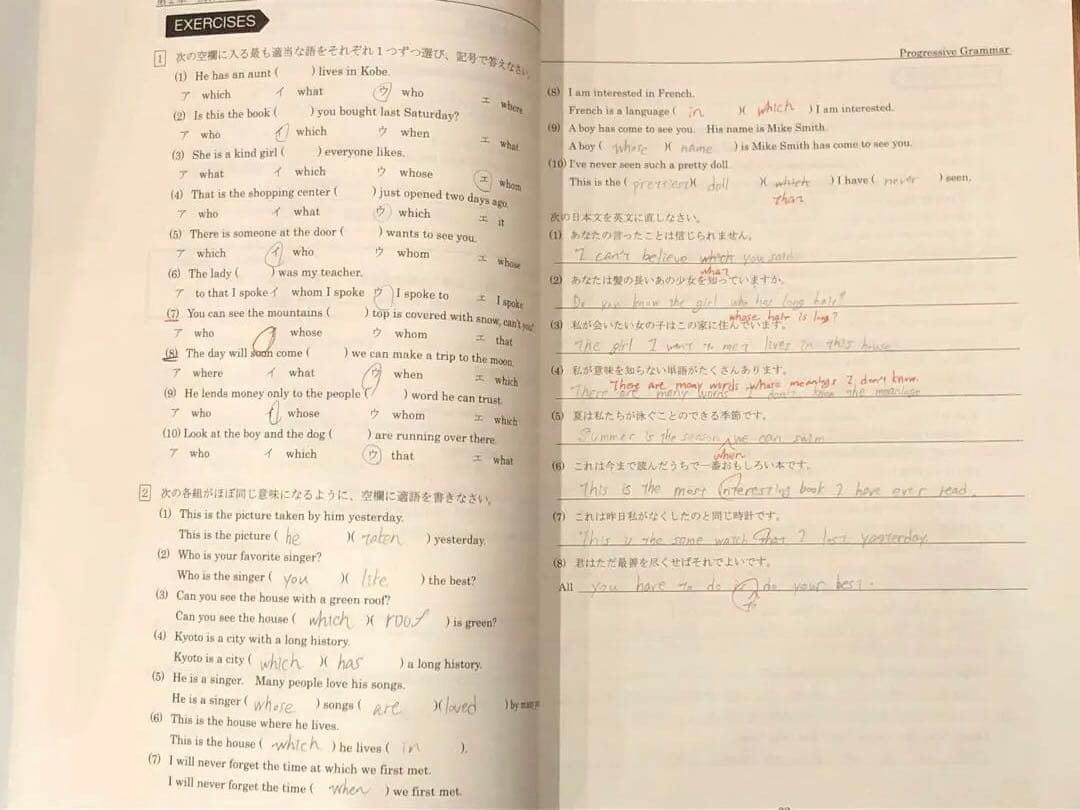 EXERCISES
1 次の空欄に入る最も適当な語をそれぞれ1つずつ選び、記号で答えなさい。
(1) He has an aunt ( ) lives in Kobe.
ア which イ what ウ who エ where
(2) Is this the book ( ) you bought last Saturday?
ア who イ which ウ when エ what
(3) She is a kind girl ( ) everyone likes.
ア what イ which ウ whose エ whom
(4) That is the shopping center ( ) just opened two days ago.
ア who イ what ウ which エ it
(5) There is someone at the door ( ) wants to see you.
ア which イ who ウ whom エ whose
(6) The lady ( ) was my teacher.
ア to that I spoke イ whom I spoke ウ I spoke to エ I spoke
(7) You can see the mountains ( ) top is covered with snow, can't you?
ア who イ whose ウ whom エ that
(8) The day will soon come ( ) we can make a trip to the moon.
ア where イ what ウ when エ which
(9) He lends money only to the people ( ) word he can trust.
ア who イ whose ウ whom エ which
(10) Look at the boy and the dog ( ) are running over there.
ア who イ which ウ that エ what
2 次の各組がほぼ同じ意味になるように、空欄に適語を書きなさい。
(1) This is the picture taken by him yesterday.
This is the picture ( he )( taken ) yesterday.
(2) Who is your favorite singer?
Who is the singer ( you )( like ) the best?
(3) Can you see the house with a green roof?
Can you see the house ( which )( roof ) is green?
(4) Kyoto is a city with a long history.
Kyoto is a city ( which )( has ) a long history.
(5) He is a singer. Many people love his songs.
He is a singer ( whose ) songs ( are )( loved ) by many
(6) This is the house where he lives.
This is the house ( which ) he lives ( in ).
(7) I will never forget the time at which we first met.
I will never forget the time ( when ) we first met.
Progressive Grammar
(8) I am interested in French.
French is a language ( in )( which ) I am interested.
(9) A boy has come to see you. His name is Mike Smith.
A boy ( whose )( name ) is Mike Smith has come to see you.
(10) I've never seen such a pretty doll.
This is the ( prettiest )( doll )( which ) I have ( never ) seen.
that
次の日本文を英文に直しなさい。
(1) あなたの言ったことは信じられません。
I can't believe which you said
what
(2) あなたは髪の長いあの少女を知っていますか。
Do you know the girl who has long hair?
whose hair is long?
(3) 私が会いたい女の子はこの家に住んでいます。
The girl I want to meet lives in this house
(4) 私が意味を知らない単語がたくさんあります。
There are many words whose meanings I don't know.
There are many words I don't know the meanings
(5) 夏は私たちが泳ぐことのできる季節です。
Summer is the season we can swim
when
(6) これは今まで読んだうちで一番おもしろい本です。
This is the most interesting book I have ever read.
(7) これは昨日私がなくしたのと同じ時計です。
This is the same watch that I lost yesterday.
(8) 君はただ最善を尽くせばそれでよいです。
All you have to do is do your best.
to